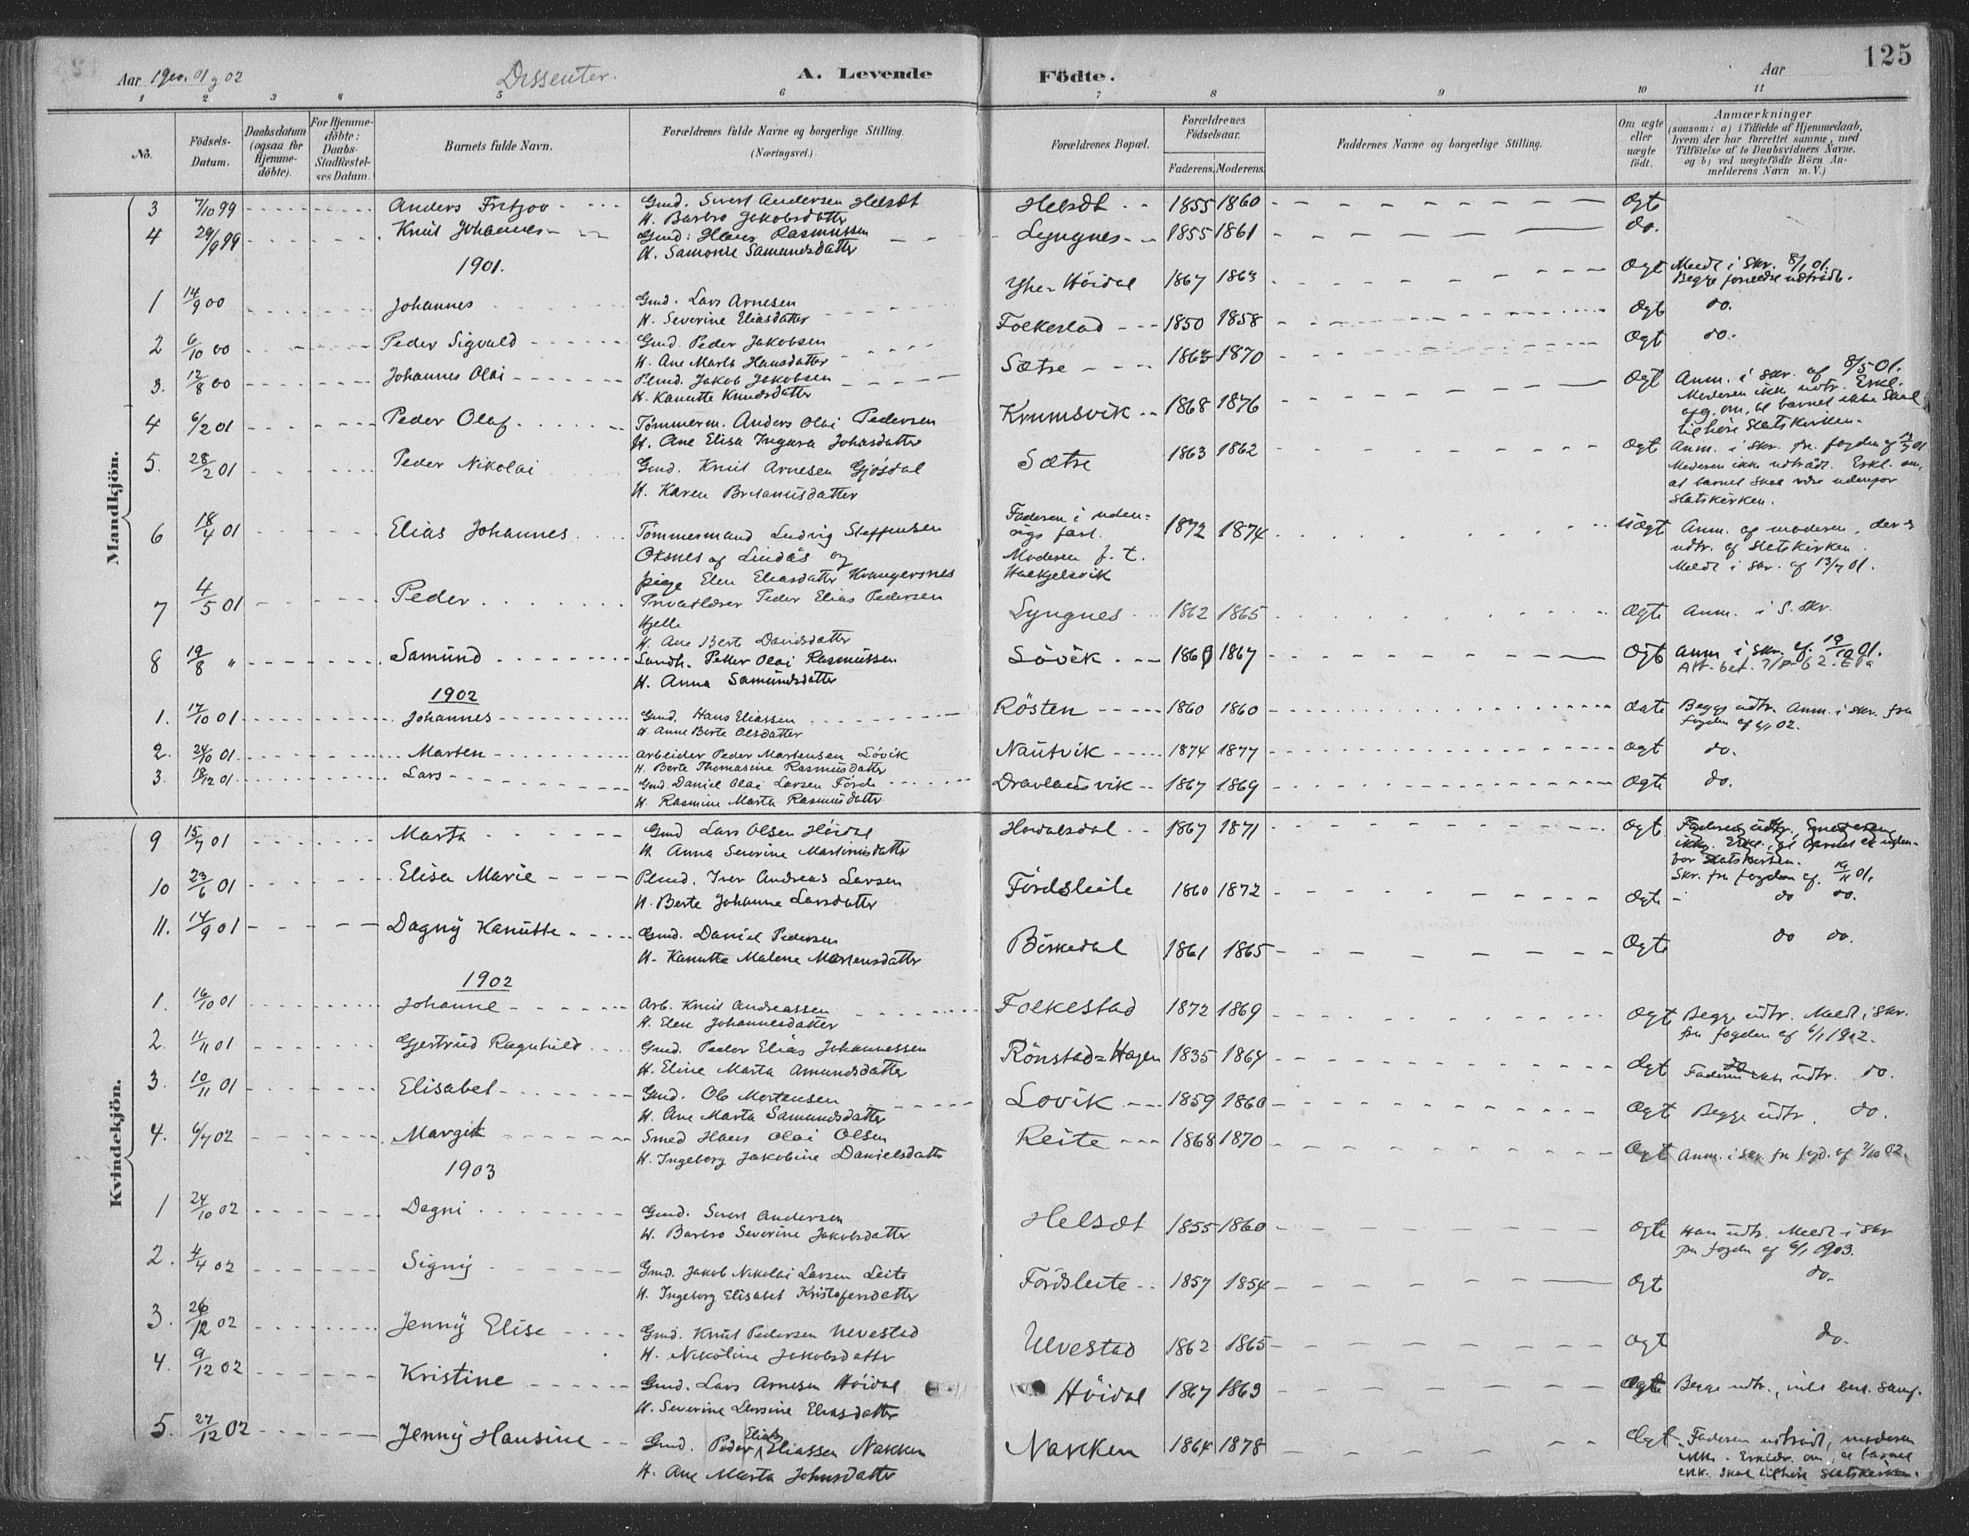 Aar 1900. 01 og 02
Dissenter.
A. Levende
Födte.
Aar
125
1 2 3 4 5 6 7 8 9 10 11
No.
Födsels-Datum.
Daabsdatum (ogsaa for Hjemme-döbte).
For Hjemme-döbte: Daabs-Stadfæstel-ses Datum.
Barnets fulde Navn.
Forældrenes fulde Navne og borgerlige Stilling. (Næringsvei.)
Forældrenes Bopæl.
Forældrenes Födselsaar.
Faderens. Moderens.
Faddernes Navne og borgerlige Stilling.
Om ægte eller uægte födt.
Anmærkninger
(saasom: a) i Tilfælde af Hjemmedaab, hvem der har forrettet samme, med Tilföielse af to Daabsvidners Navne, og b) ved uægtefödte Börn Anmelderens Navn m. V.)
Mandkjön.
3 7/10 99 Anders Fritjov Gmd. Sivert Andersen Helsæt Helsæt 1855 1860 Ægt
H. Barbro Jakobsdatter
4 29/9 99 Knut Johannes Gmd. Hans Rasmussen Lyngnes 1855 1861 do.
H. Samonie Samundsdatter
1901.
1 14/9 00 Johannes Gmd. Lars Arnesen Yhr-Höidal 1867 1863 Ægt Meldt i Skr. 8/1 01.
H. Severine Eliasdatter Begge forældre udtrådt.
2 6/10 00 Peder Sigvald Gmd. Peder Jakobsen Folkestad 1850 1858 Ægt do.
H. Ane Marta Hansdatter
3. 12/8 00 Johannes Olai Plmd. Jakob Jakobsen Sætre 1863 1870 Ægt do.
H. Kanutte Knudsdatter
4 6/2 01 Peder Olaf Tömmerm. Anders Olai Pedersen Krumsvik 1868 1876 Ægt Anm. i skr. af 8/5 01.
H. Ane Elisa Ingvara Johnsdatter Moderen ikke udtr. Erkl.
om, at barnet ikke skal
tilhöre Statskirken.
5. 28/2 01 Peder Nikolai Gmd. Knut Arnesen Gjösdal Sætre 1863 1862 Ægt Anm. i skr. fra fogden af
H. Karen Bretanusdatter Moderen ikke udtrådt. Erkl. om,
at barnet skal være udenfor
Statskirken.
6 18/4 01 Elias Johannes Tömmermand Ludvig Steffensen Faderen i uden-rigs fart. 1872 1874 Uægt Anm. af moderen, der er
Oksnes af Lindås og Moderen f. t. udtr. af Statskirken.
pige Elen Eliasdatter Krangersnes Hackjelsvik Meldt i skr. af 13/7 01.
7 4/5 01 Peder Privatlærer Peder Elias Pedersen Lyngnes 1862 1865 Ægte Anm. i S. Skr.
Hjelle
H. Ane Berte Davidsdatter
8 19/8 " Samund Landh. Petter Olai Rasmussen Lövik 1867 Ægt Anm i skr. af 19/10 01.
H. Anna Samundsdatter Att. bet. 7/8-62.
1902
1. 17/10 01 Johannes Gmd. Hans Eliassen Rösten 1860 1860 Begge udtr. Anm. i skr. fra
H. Anne Berte Olsdatter fogden af 4/1 02.
2. 24/10 01 Marten Arbeider Peder Martensen Lövik Nautvik 1874 1877 Ægt do.
H. Berte Thomasine Rasmusdatter
3. 18/12 01 Lars Gmd. Daniel Olai Larsen Förde Dravlausvik 1867 1869 Ægte do.
H. Rasmine Marta Rasmusdatter
Kvindekjön.
9 15/7 01 Marta Gmd Lars Olsen Höidal Hovdalsdal 1867 1871 Ægt Faderen udtr., moderen
H. Anna Severine Martinusdatter ikke. Erkl., at barnet er udenfor Statskirken.
Skr. fra fogden af 19/11 01.
10 23/6 01 Elisa Marie Plmd. Iver Andreas Larsen Fördsleite 1860 1872 Ægt do do.
H. Berte Johanne Larsdatter
11. 14/9 01 Dagny Kanutte Gmd. Daniel Pedersen Birkedal 1861 1865 Ægt do do.
H. Kanutte Malene Martensdatter
1902
1. 16/10 01 Johanne Arb. Knut Andreassen Folkestad 1872 1869 Ægt Begge udtr. Meldt i skr.
H. Elen Johannesdatter fra fogden af 6/1 1902.
2. 11/11 01 Gjertrud Ragnhild Gmd. Peder Elias Johannessen Rönstad=Hagen 1835 1864 Ægt Faderen ikke udtr. do.
H. Eline Marta Amundsdatter
3. 10/11 01 Elisabet Gmd. Ole Mortensen Lovik 1859 1860 Ægt Begge udtr. do.
H. Ane Marta Samundsdatter
4. 6/7 02 Margit Smed Hans Olai Olsen Reite 1868 1870 Ægt Anm. i skr. fra fogd. af 2/10 02.
H. Ingeborg Jakobine Danielsdatter
1903
1 24/10 02 Dagni Gmd. Sivert Andersen Helsæt 1855 1860 Ægte Han udtr. Meldt i skr
H. Barbro Severine Jakobsdatter fra fogden af 6/1 1903.
2. 4/4 02 Signy Gmd. Jakob Nikolai Larsen Leite Fördsleite 1857 1854 Ægt do.
H. Ingeborg Elisabet Kristofersdatter
3. 26/12 02 Jenny Elise Gmd. Knut Pedersen Ulvestad Ulvestad 1862 1865 Ægt do.
H. Nikoline Jakobsdatter
4. 9/12 02 Kristine Gmd. Lars Arnesen Höidal Höidal 1867 1863 Ægte Begge udtr.
H. Severine Eliasdatter
5. 27/12 02 Jenny Hansine Gmd. Peder Elias Eliassen Nakken Nakken 1864 1878 Ægt Faderen udtrådt, moderen
H. Ane Marta Johnsdatter ikke. Erklær. om at barnet
ikke skal tilhöre Statskirken.